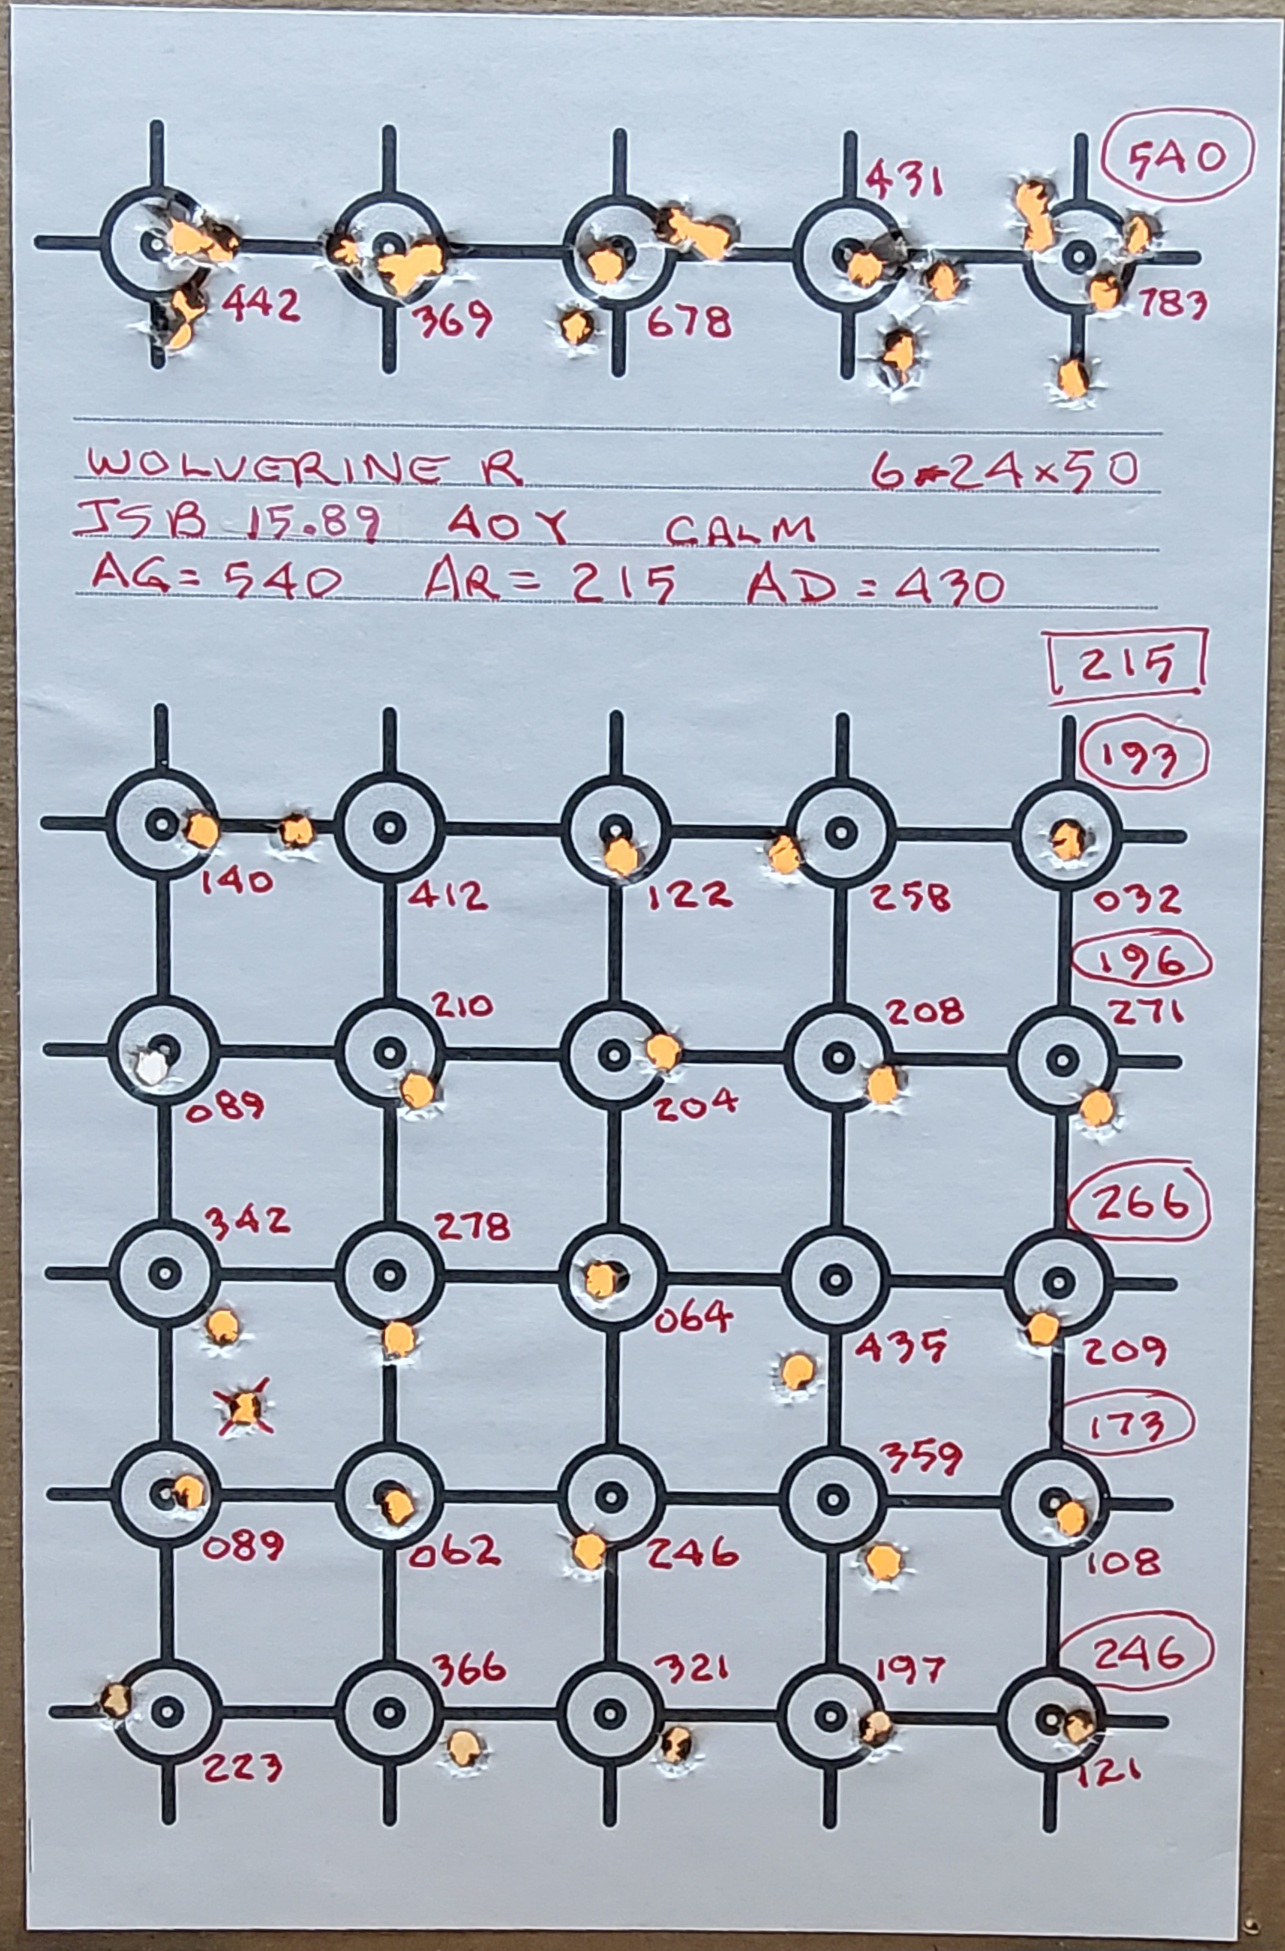 540
431
442 369 678 783
WOLVERINE R 6-24x50
JSB 15.89 40Y CALM
AG = 540 AR = 215 AD = 430
215
193
140 412 122 258 032
196
210 208 271
089 204
266
342 278
064 435 209
173
359
089 062 246 108
246
366 321 197
223 121